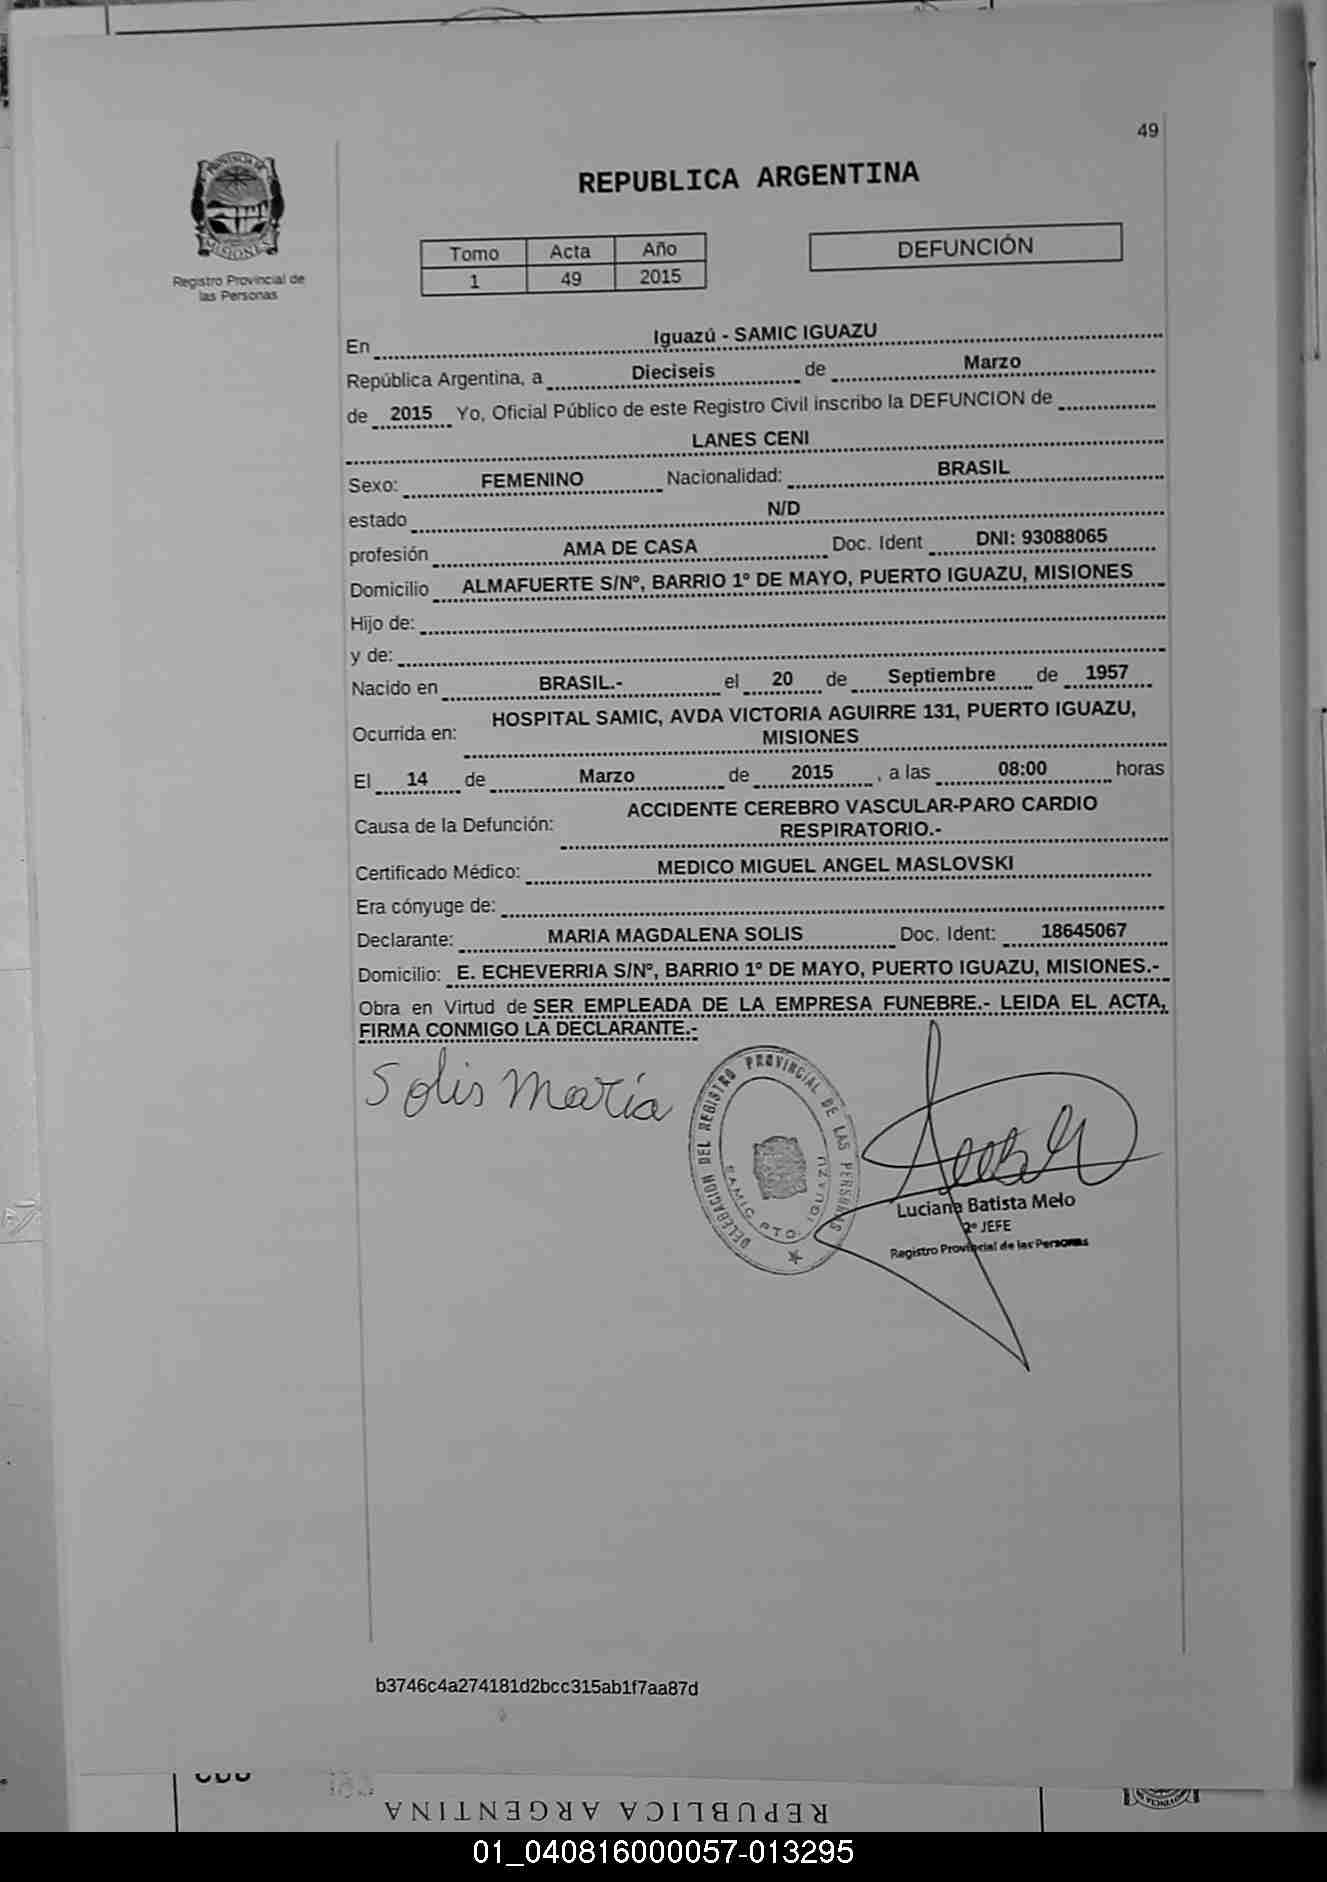 49
PROVINCIA DE
MISIONES
Registro Provincial de
las Personas
REPUBLICA ARGENTINA
Tomo Acta Año
1 49 2015
DEFUNCIÓN
En Iguazú - SAMIC IGUAZU
República Argentina, a Dieciseis de Marzo
de 2015 Yo, Oficial Público de este Registro Civil inscribo la DEFUNCION de
LANES CENI
Sexo: FEMENINO Nacionalidad: BRASIL
estado N/D
profesión AMA DE CASA Doc. Ident DNI: 93088065
Domicilio ALMAFUERTE S/Nº, BARRIO 1º DE MAYO, PUERTO IGUAZU, MISIONES
Hijo de:
y de:
Nacido en BRASIL.- el 20 de Septiembre de 1957
Ocurrida en: HOSPITAL SAMIC, AVDA VICTORIA AGUIRRE 131, PUERTO IGUAZU,
MISIONES
El 14 de Marzo de 2015 , a las 08:00 horas
Causa de la Defunción: ACCIDENTE CEREBRO VASCULAR-PARO CARDIO
RESPIRATORIO.-
Certificado Médico: MEDICO MIGUEL ANGEL MASLOVSKI
Era cónyuge de:
Declarante: MARIA MAGDALENA SOLIS Doc. Ident: 18645067
Domicilio: E. ECHEVERRIA S/Nº, BARRIO 1º DE MAYO, PUERTO IGUAZU, MISIONES.-
Obra en Virtud de SER EMPLEADA DE LA EMPRESA FUNEBRE.- LEIDA EL ACTA,
FIRMA CONMIGO LA DECLARANTE.-
Solis María
DELEGACION DEL REGISTRO PROVINCIAL DE LAS PERSONAS
SAMIC PTO. IGUAZU
Luciana Batista Melo
2º JEFE
Registro Provincial de las Personas
b3746c4a274181d2bcc315ab1f7aa87d
REPUBLICA ARGENTINA
01_040816000057-013295